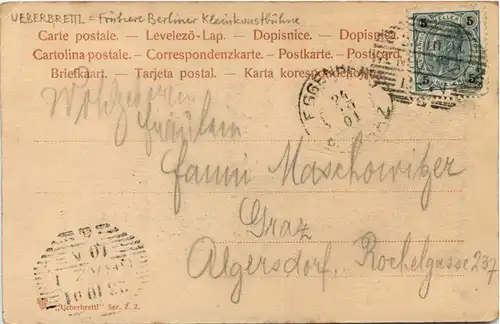 UEBERBRETTL = Frühere Berliner Kleinkunstbühne
Carte postale. — Levelezö-Lap. — Dopisnice. — Dopisnica.
Cartolina postale. — Correspondenzkarte. — Postkarte. — Postcard.
Briefkaart. — Tarjeta postal. — Karta korespondencyjna.
5 5
5 5
EGGENBERG
24
01
GRAZ
Wohlgeboren
Fräulein
Fanni Maschowitzer
Graz
Algersdorf, Rochelgasse 237
25 10 01
"Ueberbrettl" Ser. Z. 2.